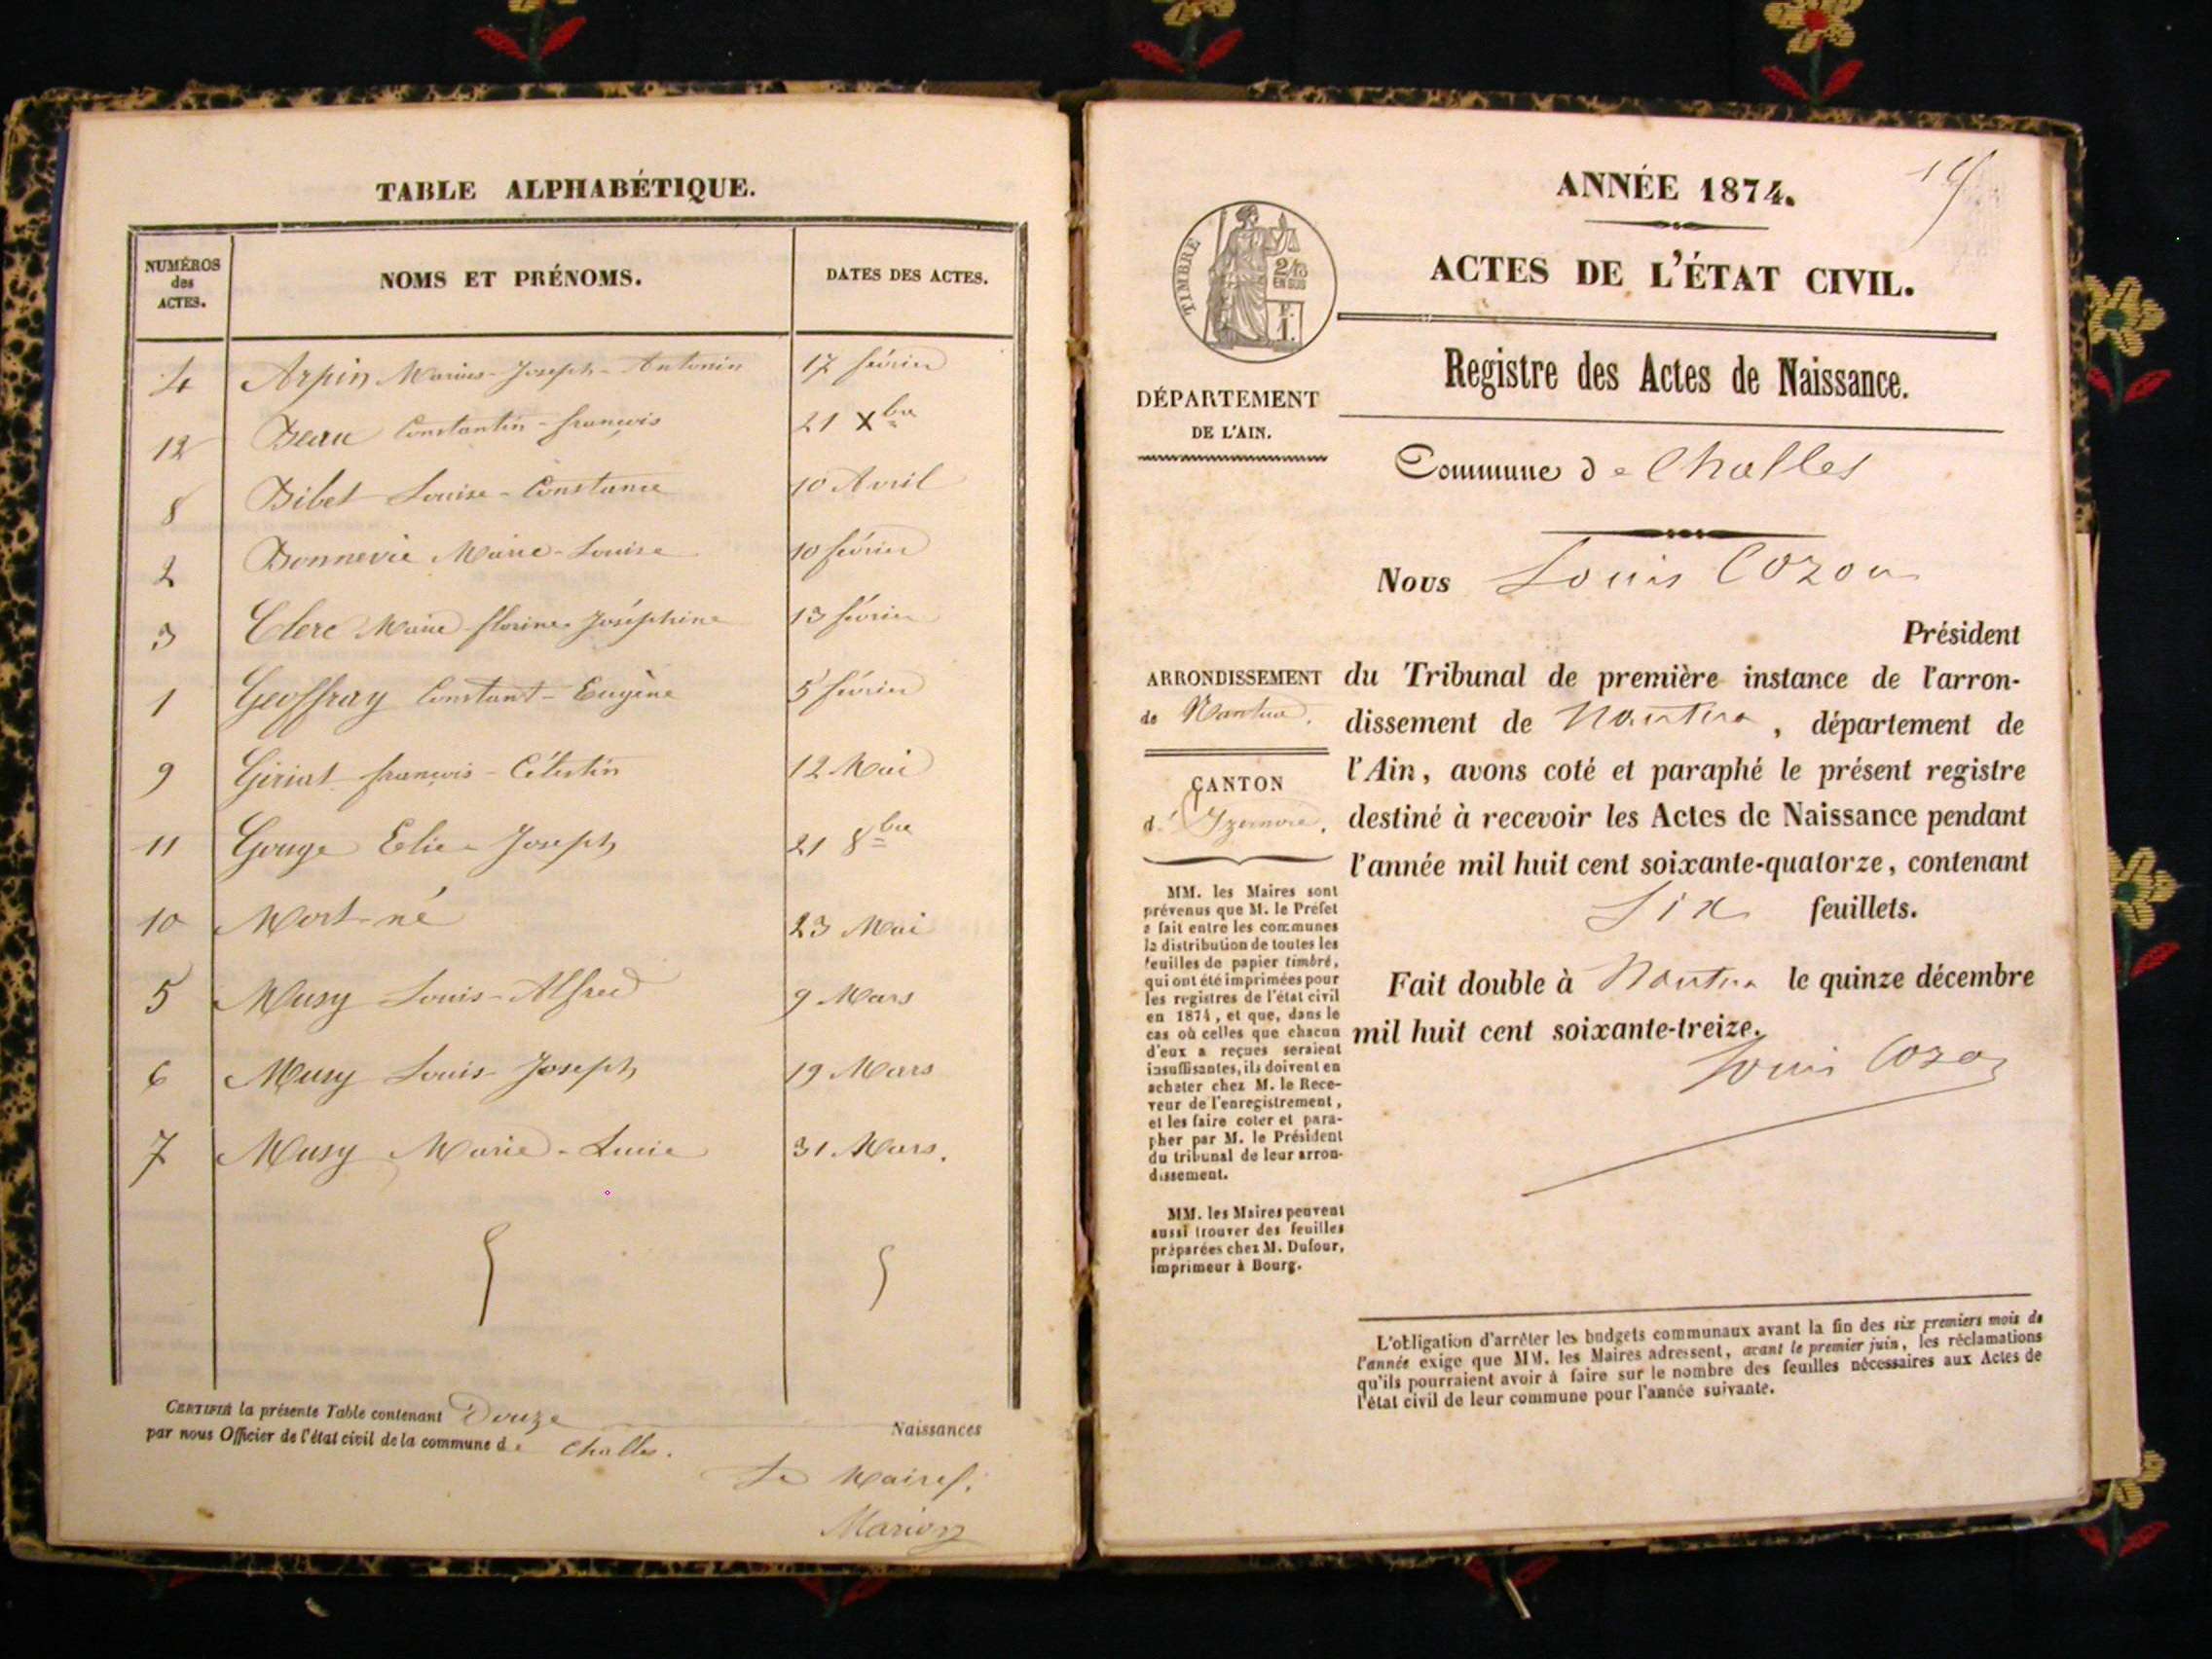 TABLE ALPHABÉTIQUE.
NUMÉROS
des
ACTES.
NOMS ET PRÉNOMS.
DATES DES ACTES.
4 Arpin Marius-Joseph-Antonin 17 février
12 Beau Constantin-françois 21 Xbre
8 Bibet Louise-Constance 10 Avril
2 Bonnevie Marie-Louise 10 février
3 Clerc Marie-florine-Joséphine 13 février
1 Geoffray Constant-Eugène 5 février
9 Giriat françois-Célestin 12 Mai
11 Gouge Elie-Joseph 21 8bre
10 Mort-né 23 Mai
5 Musy Louis-Alfred 9 Mars
6 Musy Louis-Joseph 19 Mars
7 Musy Marie-Lucie 31 Mars.
CERTIFIÉ la présente Table contenant Douze Naissances
par nous Officier de l'état civil de la commune de Challes.
Le Maire,
Marion
ANNÉE 1874.
ACTES DE L'ÉTAT CIVIL.
TIMBRE
2/10
EN SUS
Registre des Actes de Naissance.
DÉPARTEMENT
DE L'AIN.
Commune de Challes
Nous Louis Cozon
Président
ARRONDISSEMENT
de Nantua.
CANTON
d'Izernore.
du Tribunal de première instance de l'arron-
dissement de Nantua, département de
l'Ain, avons coté et paraphé le présent registre
destiné à recevoir les Actes de Naissance pendant
l'année mil huit cent soixante-quatorze, contenant
six feuillets.
Fait double à Nantua le quinze décembre
mil huit cent soixante-treize.
Louis Cozon
MM. les Maires sont
prévenus que M. le Préfet
a fait entre les communes
la distribution de toutes les
feuilles de papier timbré,
qui ont été imprimées pour
les registres de l'état civil
en 1874, et que, dans le
cas où celles que chacun
d'eux a reçues seraient
insuffisantes, ils doivent en
acheter chez M. le Rece-
veur de l'enregistrement,
et les faire coter et para-
pher par M. le Président
du tribunal de leur arron-
dissement.
MM. les Maires peuvent
aussi trouver des feuilles
préparées chez M. Dufour,
imprimeur à Bourg.
L'obligation d'arrêter les budgets communaux avant la fin des six premiers mois de
l'année exige que MM. les Maires adressent, avant le premier juin, les réclamations
qu'ils pourraient avoir à faire sur le nombre des feuilles nécessaires aux Actes de
l'état civil de leur commune pour l'année suivante.